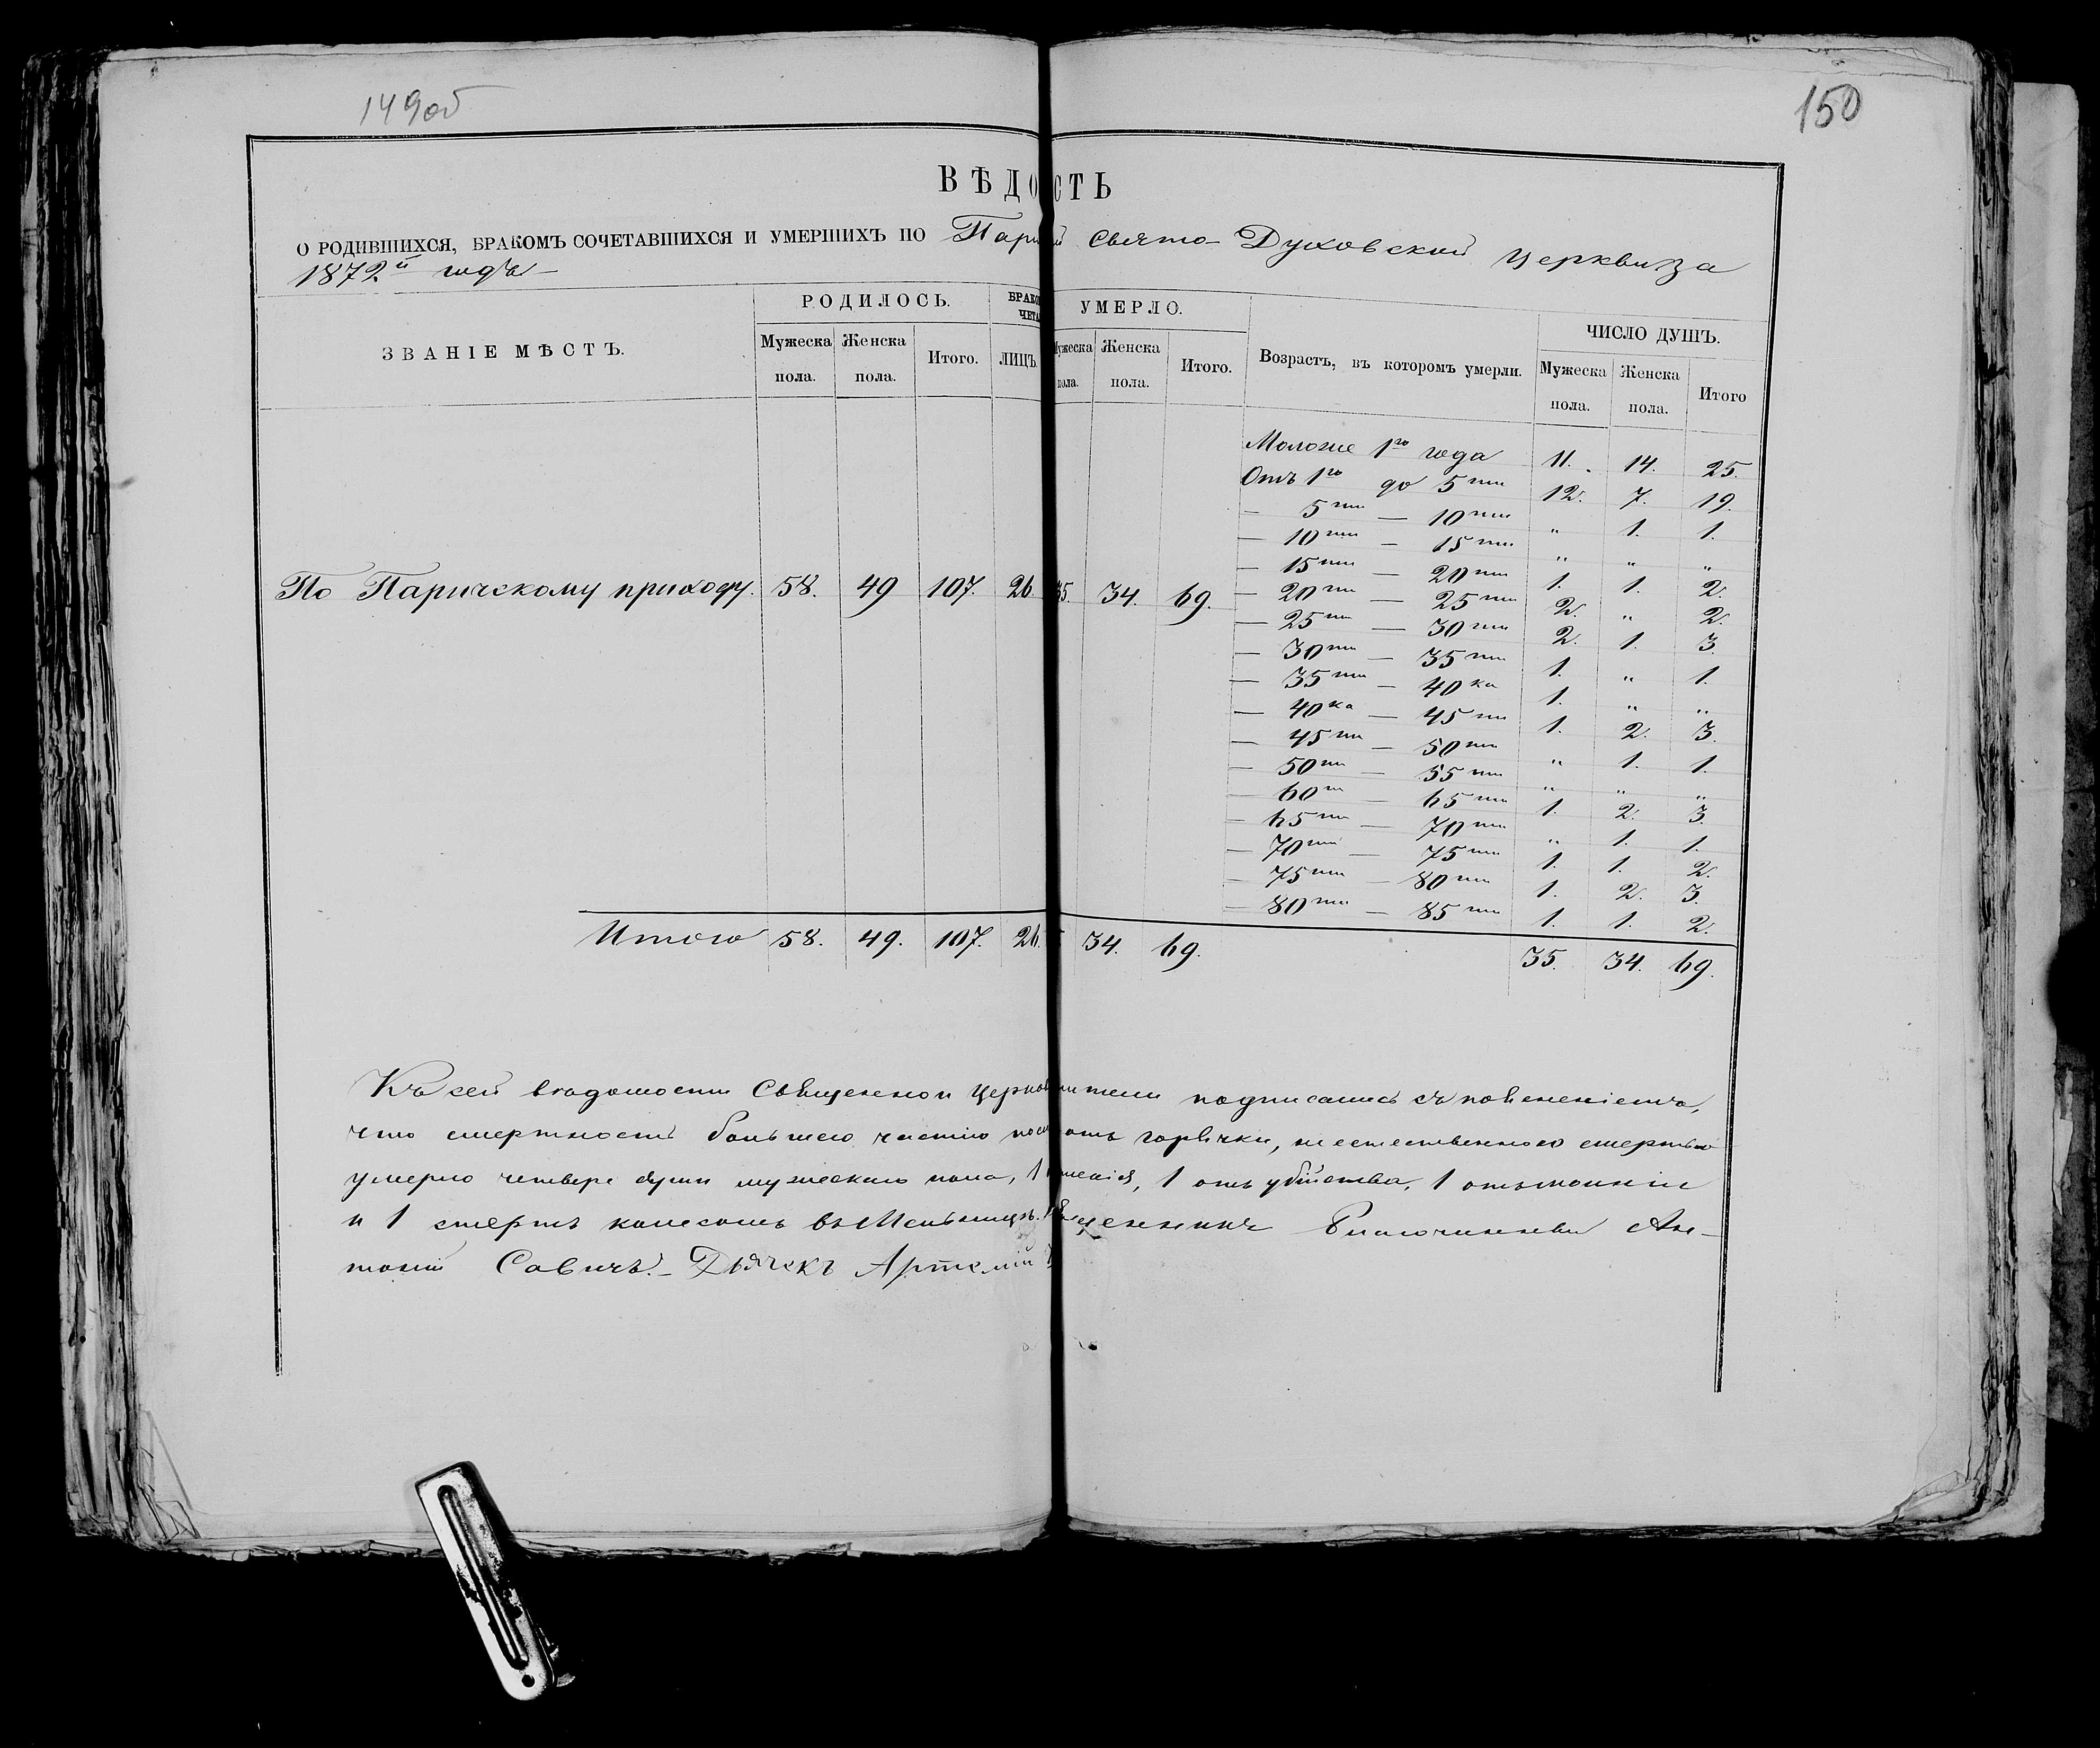 149об
150
ВѢДО СТЬ
О РОДИВШИХСЯ, БРАКОМЪ СОЧЕТАВШИХСЯ И УМЕРШИХЪ ПО Пари й Свято-Духовской церкви за
1872й годъ
ЗВАНІЕ МѢСТЪ. РОДИЛОСЬ. БРАКО УМЕРЛО. Возрастъ, въ которомъ умерли. ЧИСЛО ДУШЪ.
ЧЕТА
Мужеска пола. Женска пола. Итого. ЛИЦЪ. Мужеска пола. Женска пола. Итого. Мужеска пола. Женска пола. Итого
Моложе 1го года 11. 14. 25.
Отъ 1го до 5ти 12. 7. 19.
— 5ти — 10ти „ 1. 1.
— 10ти — 15ти „ „ „
— 15ти — 20ти 1. 1. 2.
По Паричскому приходу. 58. 49 107. 26 35. 34. 69.
— 20ти — 25ти 2. „ 2.
— 25ти — 30ти 2. 1. 3.
— 30ти — 35ти 1. „ 1.
— 35ти — 40ка 1. „ „
— 40ка — 45ти 1. 2. 3.
— 45ти — 50ти „ 1. 1.
— 50ти — 55ти „ „ „
— 60ти — 65ти 1. 2. 3.
— 65ти — 70ти „ 1. 1.
— 70ти — 75ти 1. 1. 2.
— 75ти — 80ти 1. 2. 3.
— 80ти — 85ти 1. 1. 2.
Итого 58. 49. 107. 26. 34. 69. 35. 34. 69.
Къ сей вѣдомости Священно и церков тели подписались съ
что смертность большею частію отъ горячки, неестественною смертью
умерло четверо души мужескаго пола, 1 1 отъ убійства, 1 отъ
и 1 стертъ колесомъ въ Мельницѣ. щенникъ Ан-
тоній Савичъ. Дьячекъ Артемій